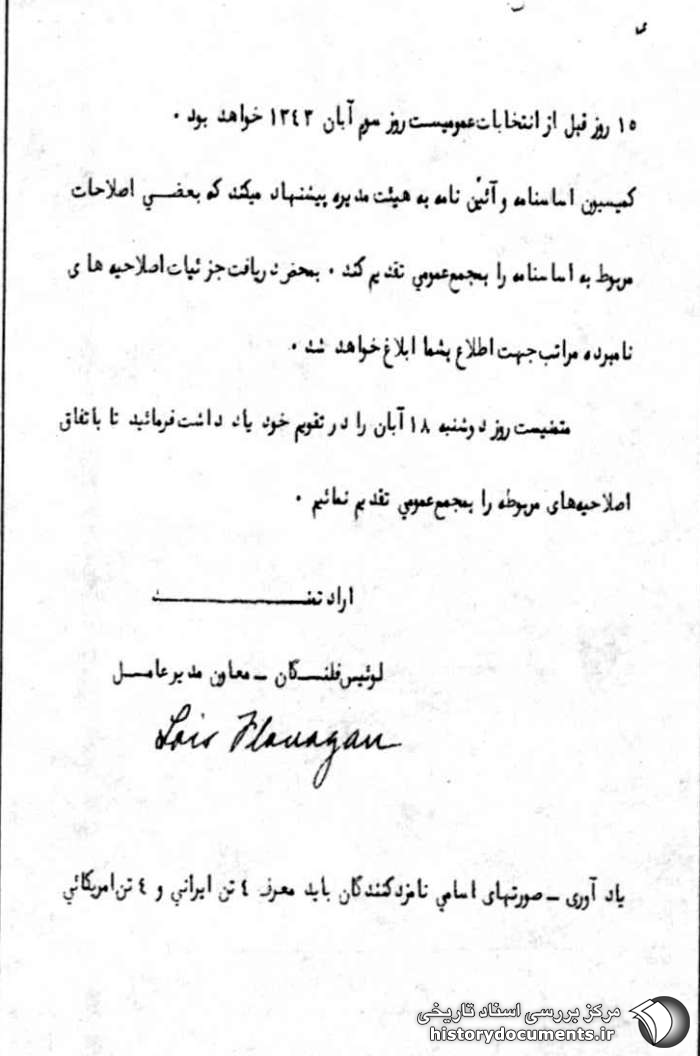 ۱۵ روز قبل از انتخابات عمومیست روز سوم آبان ۱۳۴۳ خواهد بود .
کمیسیون اساسنامه و آئین نامه به هیئت مدیره پیشنهاد میکند که بعضی اصلاحات
مربوط به اساسنامه را بمجمع عمومی تقدیم کند . بمحض دریافت جزئیات اصلاحیه های
نامبرده مراتب جهت اطلاع بشما ابلاغ خواهد شد .
متمنیست روز دوشنبه ۱۸ آبان را در تقویم خود یاد داشت فرمائید تا باتفاق
اصلاحیه‌های مربوطه را بمجمع عمومی تقدیم نمائیم .
ارادتمند
لوئیس فلنگان - معاون مدیر عامل
Lois Flanagan
یاد آوری - صورتهای اسامی نامزد کنندگان باید معرف ۴ تن ایرانی و ۴ تن امریکائی
مرکز بررسی اسناد تاریخی
historydocuments.ir